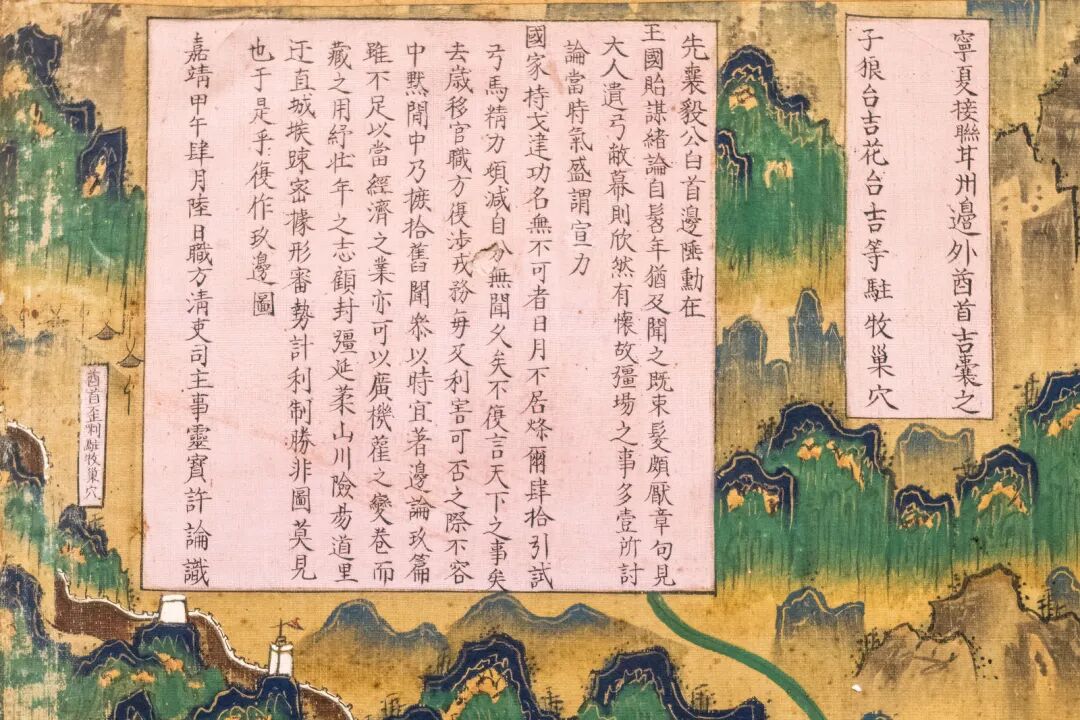 寧夏接聯甘州邊外酋首吉囊之
子狼台吉花台吉等駐牧巢穴
先襄毅公白首邊陲勳在
王國貽謀緒論自髫年猶及聞之既束髮頗厭章句見
大人遺弓敝幕則欣然有懷故疆場之事多壹所討
論當時氣盛謂宣力
國家持戈建功名無不可者日月不居倏爾肆拾引試
弓馬精力頓減自分無聞久矣不復言天下之事矣
去歲移官職方復涉戎務每及利害可否之際不容
中黙閒中乃摭拾舊聞叅以時宜著邊論玖篇
雖不足以當經濟之業亦可以廣機權之變卷而
藏之用紓壯年之志顧封疆延袤山川險昜道里
迂直城堠踈密據形審勢計利制勝非圖莫見
也于是乎復作玖邊圖
嘉靖甲午肆月陸日職方清吏司主事靈寶許論識
酋首歪剌駐牧巢穴